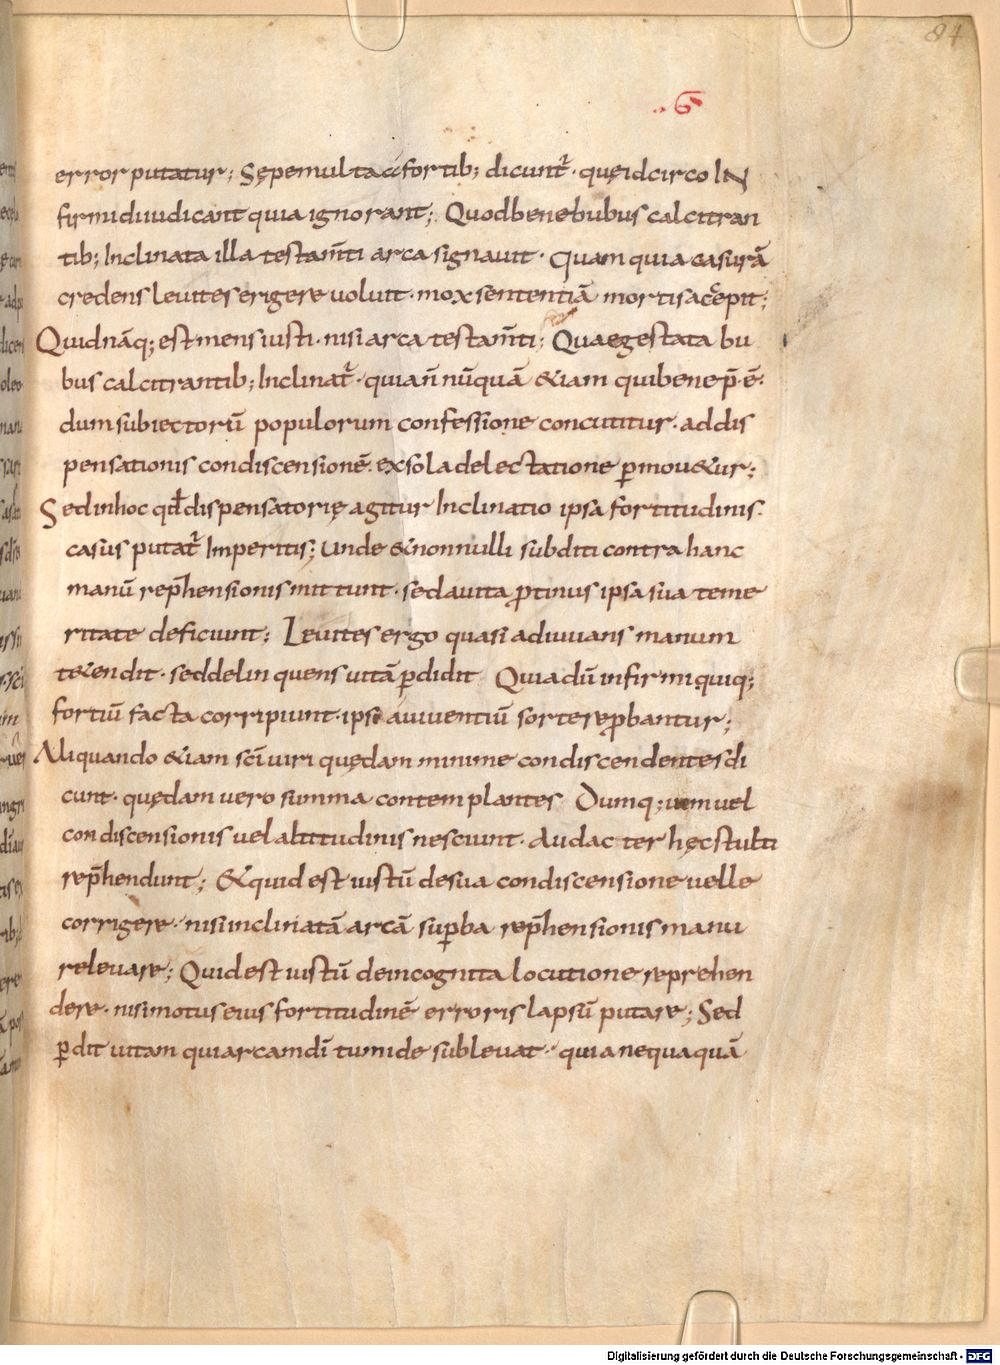 84
·6
error putatur; Sępe multa a fortib; dicunt᷑· quę idcirco IN
firmi diiudicant quia ignorant; Quod bene bubus calcitran
tib; Inclinata illa testam̅ti arca signauit· Quam quia casurā
credens leuites erigere uoluit· mox sententiā mortis accepit;
Quid nāq; est mens iusti· nisi arca testam̅ti; Quae gestata bu
bus calcitrantib; Inclinat᷑· quia n̄ nūquā &iam qui bene p̄.ē·
dum subiectorū populorum confessione concutitur· ad dis
pensationis condiscensionē· ex sola delectatione ꝑmou&ur;
Sed in hoc qđ dispensatorię agitur Inclinatio ipsa fortitudinis·
casus putat᷑ Imperitis; unde & nonnulli subditi contra hanc
manū rep̄hensionis mittunt· sed a uita ꝓtinus ipsa sua teme
ritate deficiunt; Leuites ergo quasi adiuuans manum
t&endit· sed delinquens uitā ꝑdidit Quia dū infirmi quiq;
fortiū facta corripiunt· ipsi a uiuentiū sorte reꝓbantur;
Aliquando &iam sc̄i uiri quędam minime condiscendentes di
cunt· quędam uero summa contemplantes Dumq; uim uel
condiscensionis uel altitudinis nesciunt· Audacter hęc stulti
rep̄hendunt; & quid est iustū de sua condiscensione uelle
corrigere· nisi inclinatā arcā suꝑba rep̄hensionis manu
releuare; Quid est iustū de incognita locutione reprehen
dere· nisi motus eius fortitudinē erroris lapsū putare; Sed
ꝑdit uitam qui arcam dī tumide subleuat· quia nequaquā
Digitalisierung gefördert durch die Deutsche Forschungsgemeinschaft - DFG